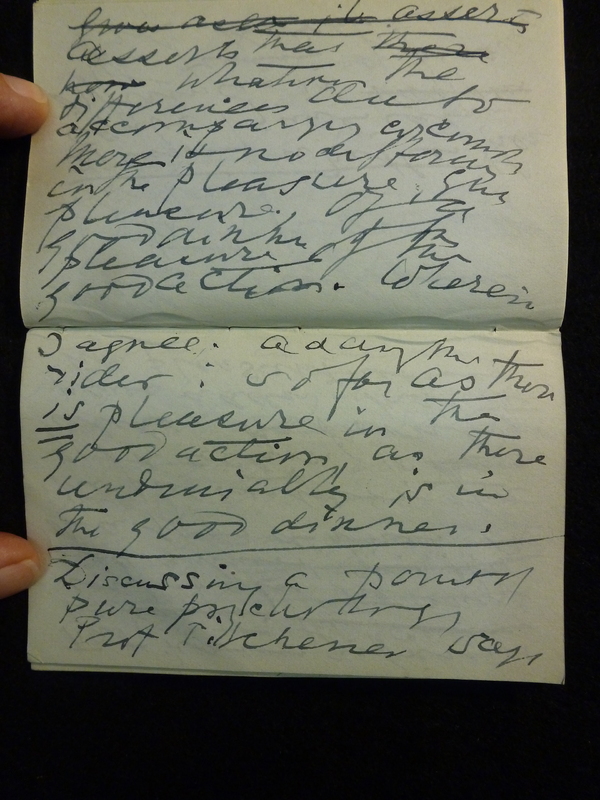 asserts
asserts that there
how whatever the
differences due to
accompanying circum
there is no difference
in the pleasure, the
pleasure of a
good dinner & the
pleasure of the
good action. Wherein
I agree. adding this
rider: so far as there
is pleasure in the
good action as there
undeniably is in
the good dinner.
Discussing a point of
pure psychology
Prof Titchener says